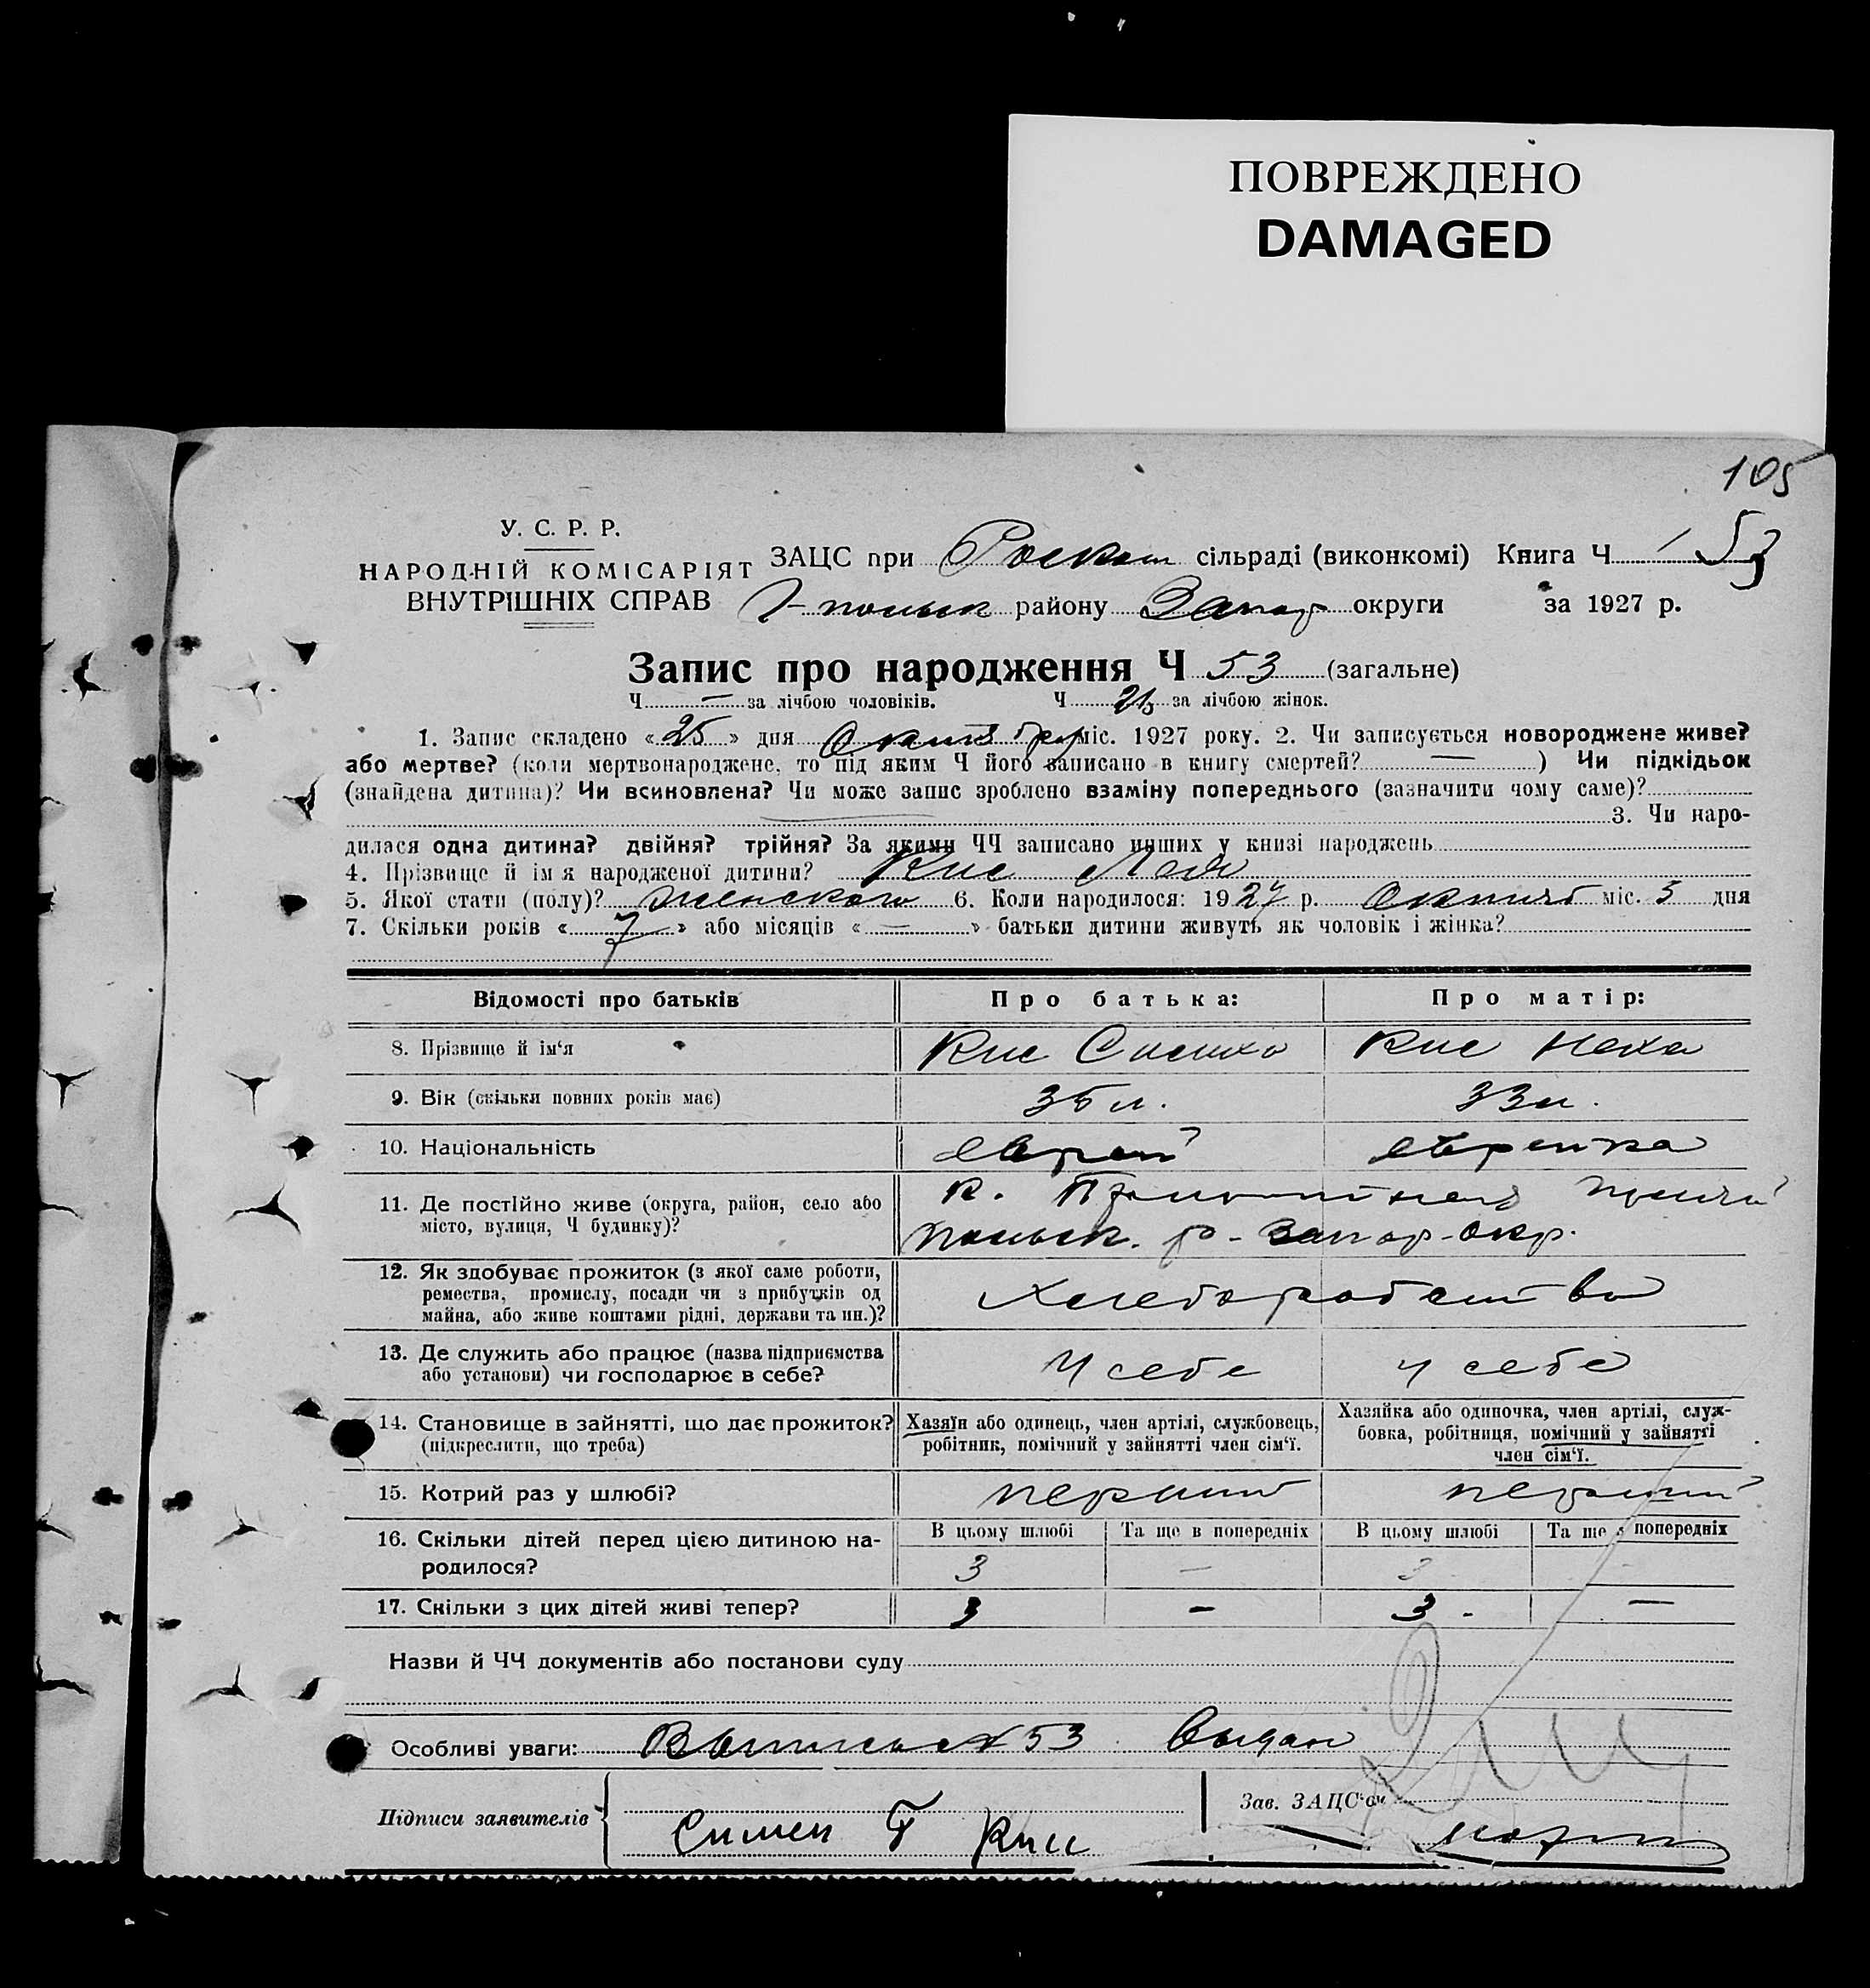 ПОВРЕЖДЕНО
DAMAGED
105
У. С. Р. Р.
НАРОДНІЙ КОМІСАРІЯТ
ВНУТРІШНІХ СПРАВ
ЗАЦС при сільраді (виконкомі) Книга Ч / 53
району Запор округи за 1927 р.
Запис про народження Ч 53 (загальне)
Ч — за лічбою чоловіків. Ч за лічбою жінок.
1. Запис складено « 25 » дня Октября міс. 1927 року. 2. Чи записується новороджене живе?
або мертве? (коли мертвонароджене, то під яким Ч його записано в книгу смертей? — ) Чи підкідьок
(знайдена дитина)? Чи всиновлена? Чи може запис зроблено взаміну попереднього (зазначити чому саме)?
3. Чи наро-
дилася одна дитина? двійня? трійня? За якими ЧЧ записано инших у книзі народжень
4. Прізвище й ім'я народженої дитини? Кис
5. Якої стати (полу)? женского 6. Коли народилося: 1927 р. Октяб міс. 5 дня
7. Скільки років « 7 » або місяців « — » батьки дитини живуть як чоловік і жінка?
Відомості про батьків Про батька: Про матір:
8. Прізвище й ім'я Кис Кис Неха
9. Вік (скільки повних років має) 35 л. 33 л.
10. Національність еврей еврейка
11. Де постійно живе (округа, район, село або
місто, вулиця, Ч будинку)?
к.
р - Запор - окр.
12. Як здобуває прожиток (з якої саме роботи,
ремества, промислу, посади чи з прибутків од
майна, або живе коштами рідні, держави та ин.)?
Хлеборобство
13. Де служить або працює (назва підприємства
або установи) чи господарює в себе?
У себе у себе
14. Становище в зайнятті, що дає прожиток?
(підкреслити, що треба)
Хазяїн або одинець, член артілі, службовець,
робітник, помічний у зайнятті член сім'ї.
Хазяйка або одиночка, член артілі, служ-
бовка, робітниця, помічний у зайнятті
член сім'ї.
15. Котрий раз у шлюбі? перший перший
16. Скільки дітей перед цією дитиною на-
родилося?
В цьому шлюбі Та ще в попередніх В цьому шлюбі Та ще в попередніх
3 — 3 —
17. Скільки з цих дітей живі тепер? 3 - 3 - —
Назви й ЧЧ документів або постанови суду
Особливі уваги: Выпись № 53 Выдан
Підписи заявителів
Зав. ЗАЦС'ом
Кис